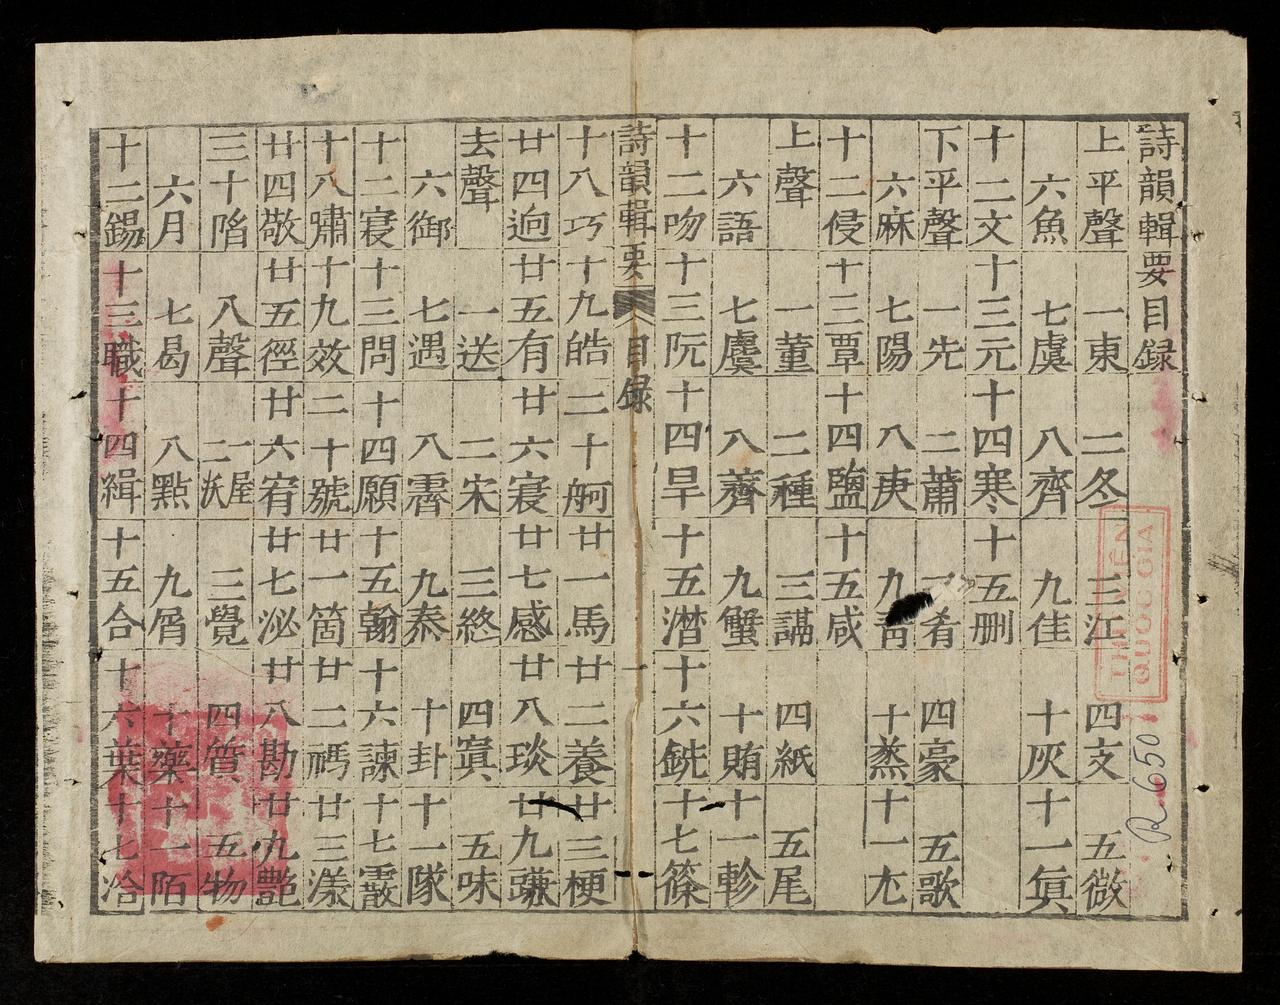 詩韻輯要目録
上平聲 一東 二冬 三江 四支 五微
六魚 七虞 八齊 九佳 十灰 十一真
十二文 十三元 十四寒 十五刪
下平聲 一先 二蕭 三肴 四豪 五歌
六麻 七陽 八庚 九青 十蒸 十一尤
十二侵 十三覃 十四鹽 十五咸
上聲 一董 二種 三講 四紙 五尾
六語 七麌 八薺 九蟹 十賄 十一軫
十二吻 十三阮 十四旱 十五潸 十六銑 十七篠
詩韻輯要 目録 一
十八巧 十九皓 二十舸 廿一馬 廿二養 廿三梗
廿四逈 廿五有 廿六寑 廿七感 廿八琰 廿九豏
去聲 一送 二宋 三絳 四寘 五味
六御 七遇 八霽 九泰 十卦 十一隊
十二震 十三問 十四願 十五翰 十六諫 十七霰
十八嘯 十九效 二十號 廿一箇 廿二禡 廿三漾
廿四敬 廿五徑 廿六宥 廿七沁 廿八勘 廿九艷
三十陷 入聲 一屋 二沃 三覺 四質 五物
六月 七曷 八黠 九屑 十藥 十一陌
十二錫 十三職 十四緝 十五合 十六葉 十七洽
THƯ VIỆN
QUỐC GIA
R 650